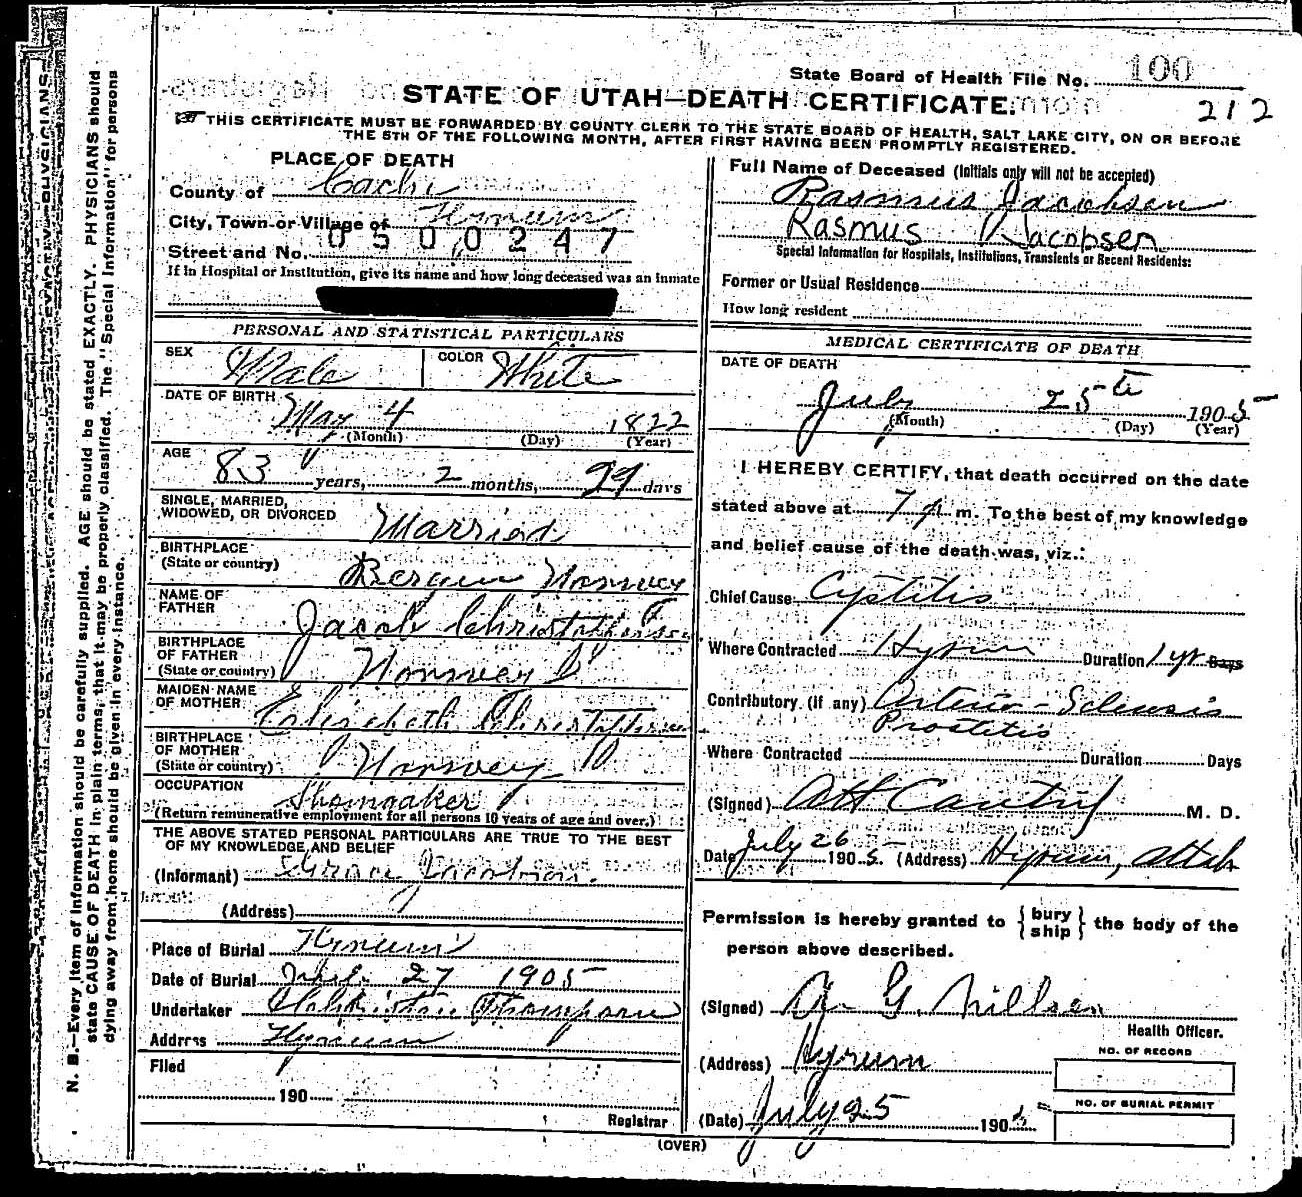 State Board of Health File No. 100
STATE OF UTAH—DEATH CERTIFICATE.
212
THIS CERTIFICATE MUST BE FORWARDED BY COUNTY CLERK TO THE STATE BOARD OF HEALTH, SALT LAKE CITY, ON OR BEFORE
THE 5TH OF THE FOLLOWING MONTH, AFTER FIRST HAVING BEEN PROMPTLY REGISTERED.
PLACE OF DEATH
County of Cache
City, Town or Village of Hyrum
Street and No. 0500247
If in Hospital or Institution, give its name and how long deceased was an inmate
PERSONAL AND STATISTICAL PARTICULARS
SEX Male COLOR White
DATE OF BIRTH May 4 1822
(Month) (Day) (Year)
AGE 83 years, 2 months, days
SINGLE, MARRIED,
WIDOWED, OR DIVORCED Married
BIRTHPLACE
(State or country) Bergen Norway
NAME OF
FATHER Jacob
BIRTHPLACE
OF FATHER
(State or country) Norway
MAIDEN NAME
OF MOTHER Elizabeth
BIRTHPLACE
OF MOTHER
(State or country) Norway
OCCUPATION Shomaker
(Return remunerative employment for all persons 10 years of age and over.)
THE ABOVE STATED PERSONAL PARTICULARS ARE TRUE TO THE BEST
OF MY KNOWLEDGE AND BELIEF
(Informant)
(Address)
Place of Burial Hyrum
Date of Burial 27 1905
Undertaker
Address Hyrum
Filed
190
Registrar
Full Name of Deceased (Initials only will not be accepted)
Rasmus Jacobsen
Rasmus Jacobsen
Special Information for Hospitals, Institutions, Transients or Recent Residents:
Former or Usual Residence
How long resident
MEDICAL CERTIFICATE OF DEATH
DATE OF DEATH
July 25th 1905
(Month) (Day) (Year)
I HEREBY CERTIFY, that death occurred on the date
stated above at 7 p m. To the best of my knowledge
and belief cause of the death was, viz.:
Chief Cause Cystitis
Where Contracted Hyrum Duration 1 yr Days
Contributory (if any) Arterio-Sclerosis
Prostitis
Where Contracted Duration Days
(Signed) M. D.
Date July 26 1905 (Address) Hyrum, Utah
Permission is hereby granted to { bury ship } the body of the
person above described.
(Signed) G. Nillsen
Health Officer.
(Address) Hyrum
NO. OF RECORD
NO. OF BURIAL PERMIT
(Date) July 25 190
(OVER)
N. B.—Every item of information should be carefully supplied. AGE should be stated EXACTLY. PHYSICIANS should
state CAUSE OF DEATH in plain terms, that it may be properly classified. The "Special Information" for persons
dying away from home should be given in every instance.